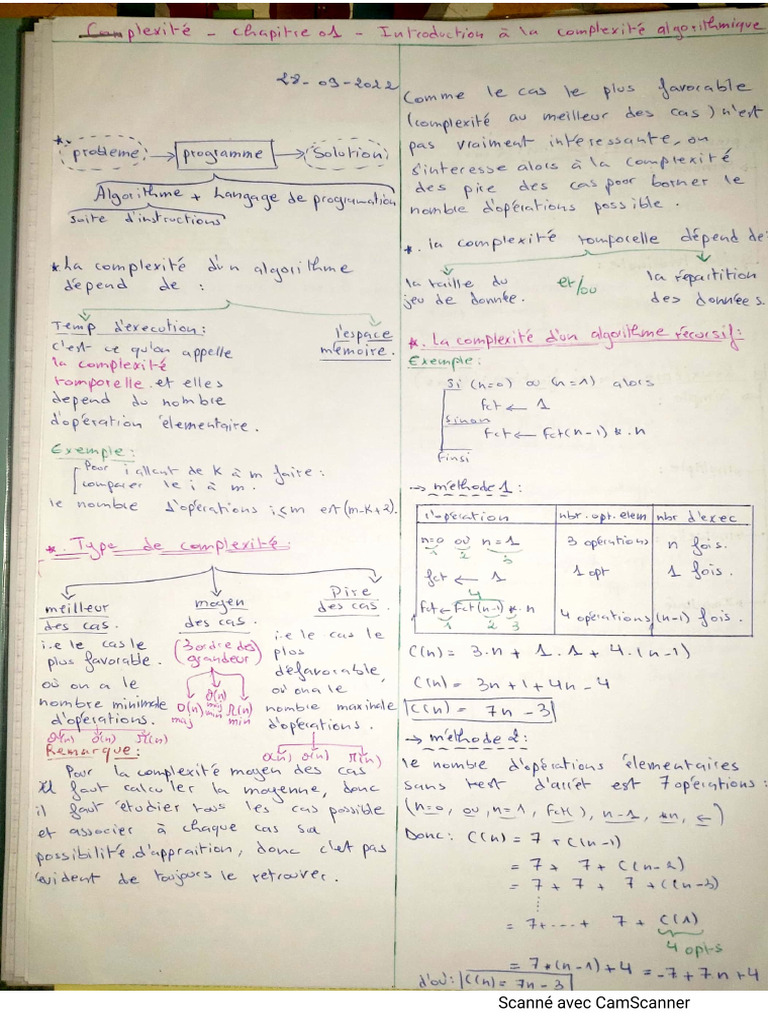 Complexité - chapitre 01 - Introduction à la complexité algorithmique
28-09-2022
*. problème → programme → Solution
Algorithme + Langage de programation
suite d'instructions
* La complexité d'un algorithme
dépend de :
Temp d'execution:
c'est ce qu'on appelle
la complexité
tomporelle et elles
depend du nombre
d'opération élementaire.
l'espace
mémoire.
Exemple:
Pour i allant de K à m faire:
comparer le i à m.
le nombre d'opérations i≤m est (m-K+2).
*. Type de complexité:
meilleur
des cas.
i.e le cas le
plus favorable.
où on a le
nombre minimale
d'opérations.
O(n) θ(n) Ω(n)
moyen
des cas.
(3 ordre des
grandeur)
O(n) θ(n) Ω(n)
maj maj min min
Pire
des cas.
i.e le cas le
plus
défavorable,
où on a le
nombre maximale
d'opérations.
O(n) θ(n) Ω(n)
Remarque:
Pour la complexité moyen des cas
Il faut calculer la moyenne, donc
il faut étudier tous les cas possible
et associer à chaque cas sa
possibilité d'appraition, donc c'est pas
évident de toujours le retrouver.
Comme le cas le plus favorable
(complexité au meilleur des cas) n'est
pas vraiment intéressante, on
s'interesse alors à la complexité
des pire des cas poor borner le
nombre d'opérations possible.
*. la complexité tomporelle dépend de:
la taille du
jeu de donnée.
et/ou
la répartition
des données.
*. La complexité d'un algorithme récorsif:
Exemple:
Si (n=0) ou (n=1) alors
fct ← 1
sinon
fct ← fct(n-1) * n
finsi
→ méthode 1:
l'opération nbr.opt.elem nbr d'exec
n=0 ou n=1 3 opérations n fois.
1 2 3
fct ← 1 1 opt 1 fois.
4
fct ← fct(n-1) * n 4 opérations (n-1) fois.
1 2 3
C(n) = 3.n + 1.1 + 4.(n-1)
C(n) = 3n+1+4n-4
C(n) = 7n-3
→ méthode 2:
le nombre d'opérations élementaires
sans test d'arrêt est 7 opérations:
(n=0, ou, n=1, fct(), n-1, *n, ←)
Donc: C(n) = 7 + C(n-1)
= 7 + 7 + C(n-2)
= 7 + 7 + 7 + C(n-3)
⋮
= 7+...+ 7 + C(1)
4 opts
= 7*(n-1)+4 = -7+7n+4
d'où: C(n) = 7n-3
Scanné avec CamScanner